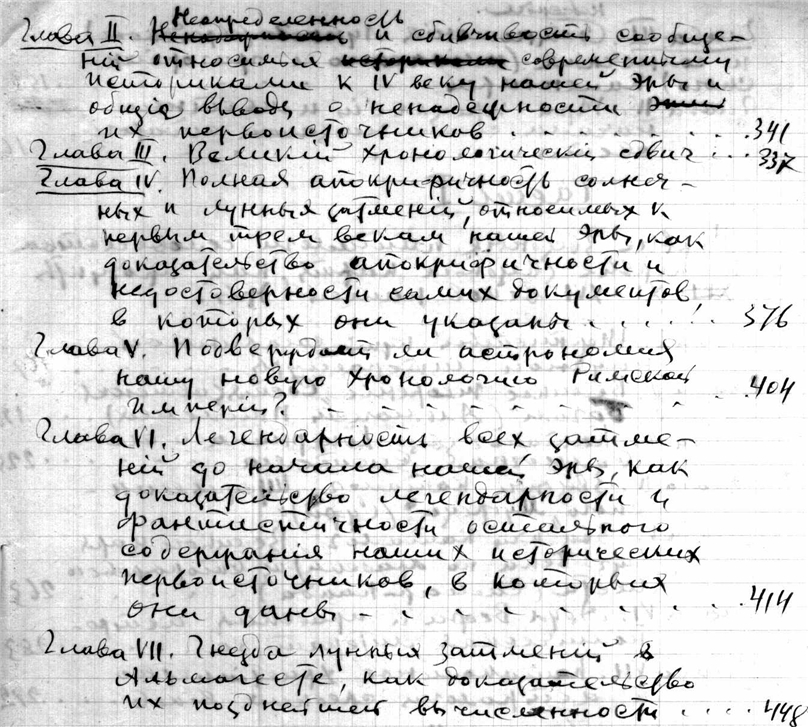 Неопределенность
Глава II. Ненадежность и сбивчивость сообще-
ний относимых историками современными
историками к IV веку нашей эры и
общие выводы о ненадежности этих
их первоисточников . . . . . . . 341
Глава III. Великий хронологический сдвиг . . . 337
Глава IV. Полная апокрифичность солнеч-
ных и лунных затмений, относимых к
первым трем векам нашей эры, как
доказательство апокрифичности и
недостоверности самих документов
в которых они указаны . . . . . . 376
Глава V. Подверждает ли астрономия
нашу новую хронологию Римской
империи? . . . . . 404
Глава VI. Легендарность всех затме-
ний до начала нашей эры, как
доказательство легендарности и
фантистичности остального
содержания наших исторических
первоисточников, в которых
они даны - . . . . . . . . 414
Глава VII. Гнезда лунных затмений в
Альмагесте, как доказательство
их позднейшей вычисленности . . . . 448